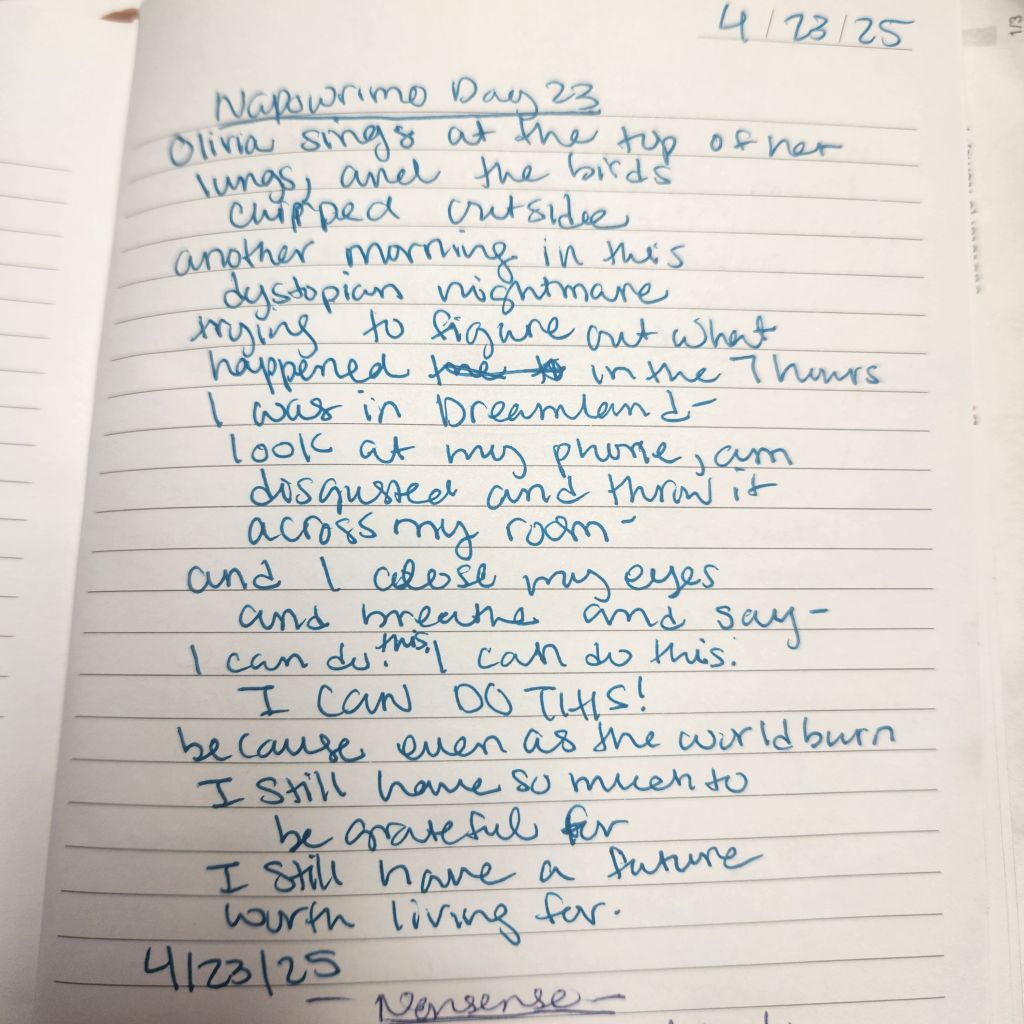 4/23/25
Napowrimo Day 23
Olivia sings at the top of her
lungs, and the birds
chirpped outside
another morning in this
dystopian nightmare
trying to figure out what
happened in the 7 hours
I was in Dreamland-
look at my phone, am
disgusted and throw it
across my room-
and I close my eyes
and breathe and say-
I can do this. I can do this.
I CAN DO THIS!
because even as the world burn
I still have so much to
be grateful for
I still have a future
worth living for.
4/23/25
- Nonsense -
1/3